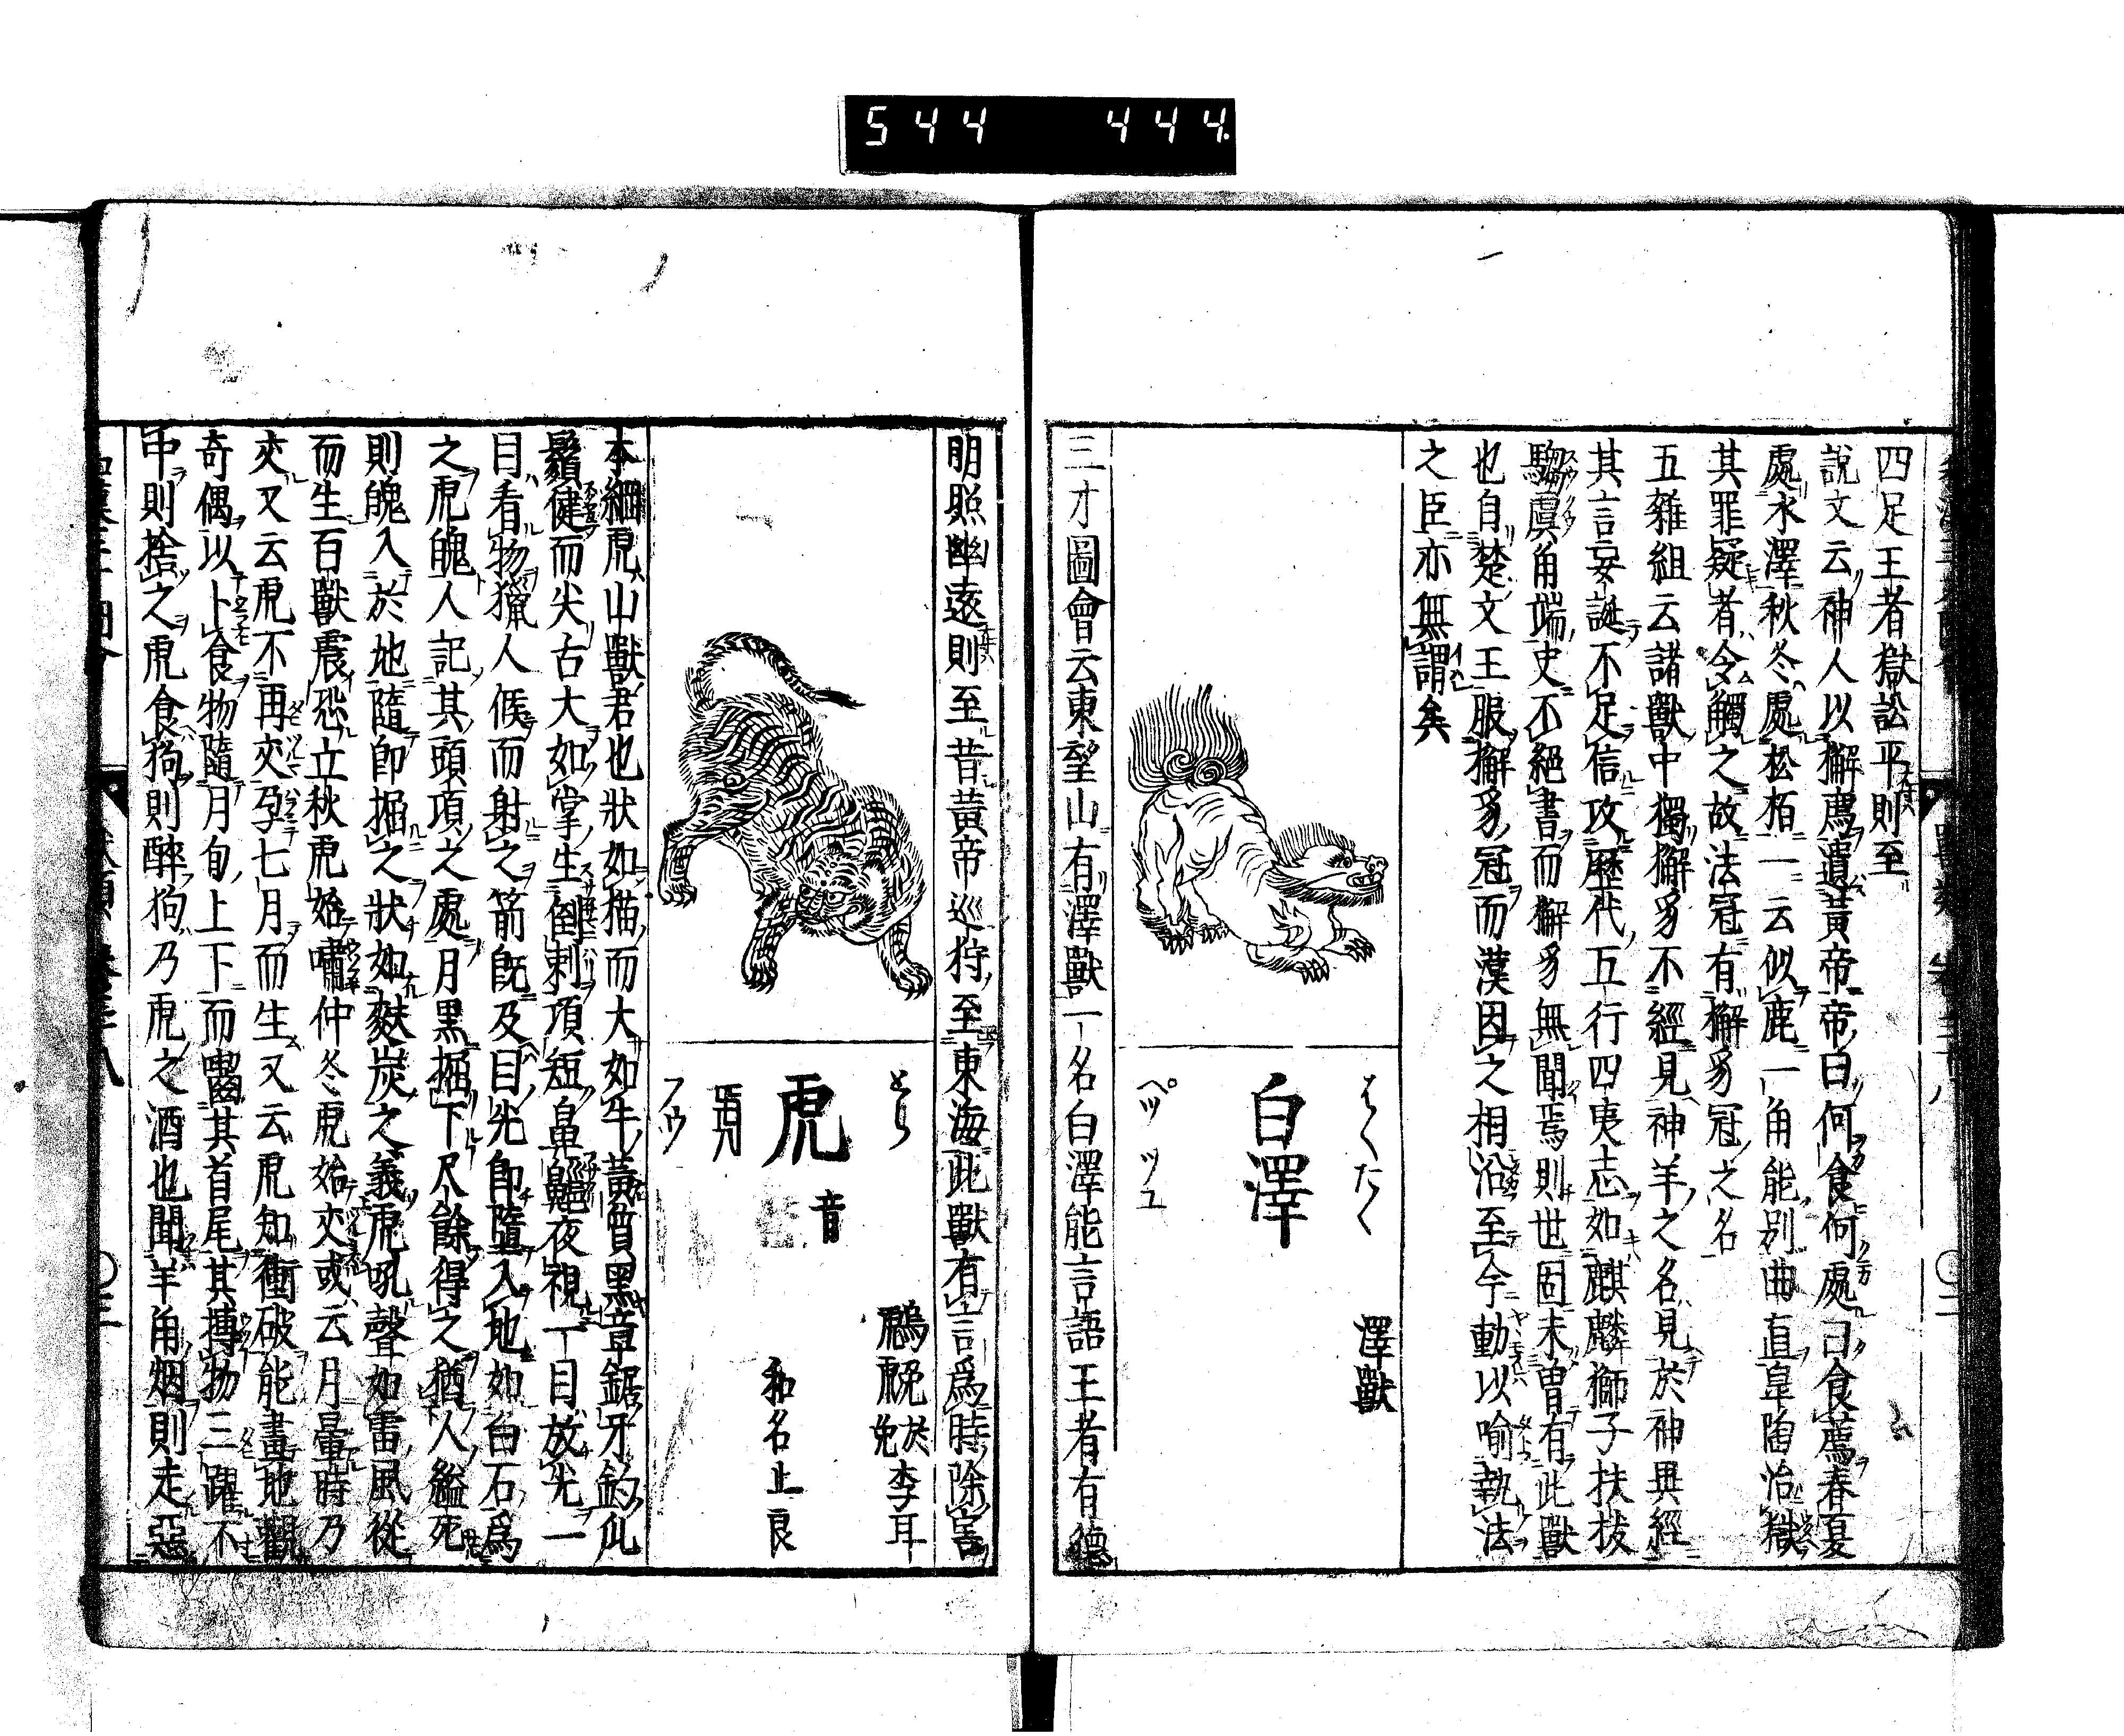 544 444.
四足王者獄訟平則至
說文云神人以獬廌遺黃帝帝曰何食何處曰食薦春夏
處水澤秋冬處松栢一云似鹿一角能別曲直皐陶治獄
其罪疑者令觸之故法冠有獬豸冠之名
五雜組云諸獸中獨獬豸不經見神羊之名見於神異經
其言妄誕不足信攻歷代五行四夷志如麒麟獅子扶拔
騶虞角端史不絕書而獬豸無聞焉則世固未曾有此獸
也自楚文王服獬豸冠而漢因之相沿至今動以喻執法
之臣亦無謂矣
はくたく
白澤
ペッ ツュ
澤獸
三才圖會云東望山有澤獸一名白澤能言語王者有德
明照幽遠則至昔黃帝巡狩至東海此獸有言爲時除害
とら
虎 音
フウ
於
李耳
和名止良
本綱虎山獸君也狀如猫而大如牛黃質黑章鋸牙鈎爪
鬚健而尖舌大如掌生倒刺項短鼻齆夜視一目放光一
目看物獵人候而射之箭既及目光即墮入地如白石爲
之虎魄人記其頭項之處月黑掘下尺餘得之猶人縊死
則魄入於地隨即掘之狀如麩炭之義虎吼聲如雷風從
而生百獸震恐立秋虎始嘯仲冬虎始交或云月暈時乃
交又云虎不再交孕七月而生又云虎知衝破能畫地觀
奇偶以卜食物隨月旬上下而囓其首尾其搏物三躍不
中則捨之虎食狗則醉狗乃虎之酒也聞羊角烟則走惡